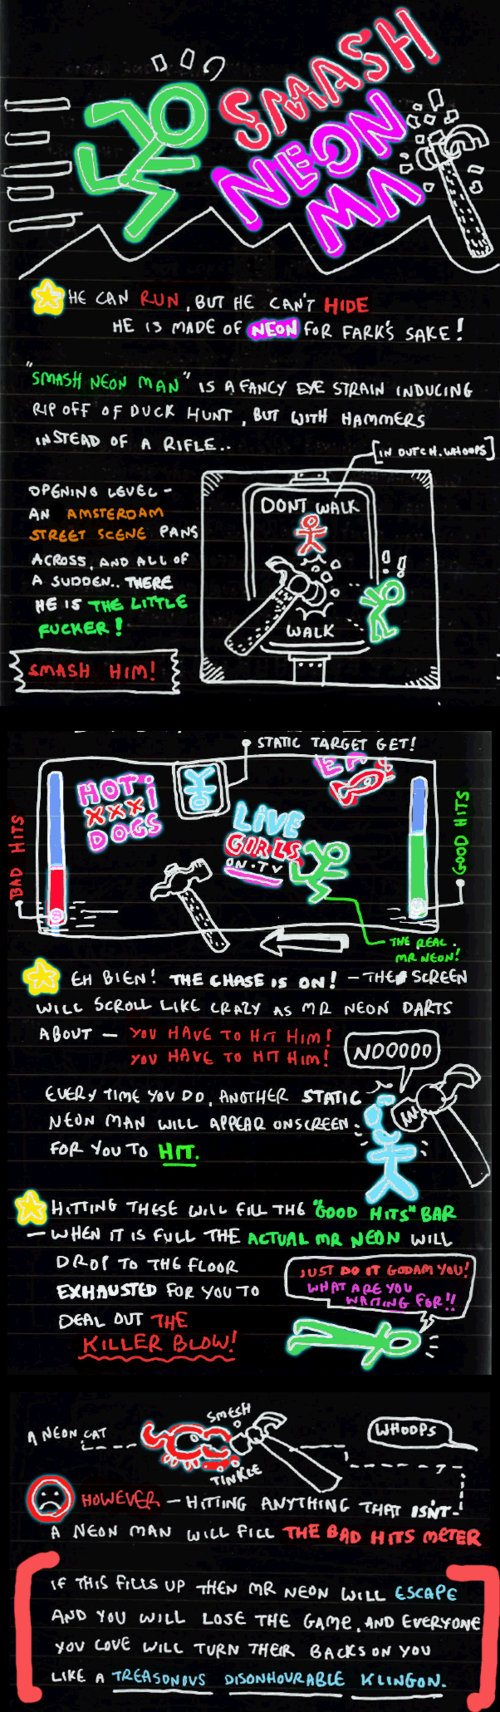 SMASH
NEON
MA
HE CAN RUN, BUT HE CAN'T HIDE
HE IS MADE OF NEON FOR FARK'S SAKE!
"SMASH NEON MAN" IS A FANCY EYE STRAIN INDUCING
RIP OFF OF DUCK HUNT, BUT WITH HAMMERS
INSTEAD OF A RIFLE..
[IN DUTCH. WHOOPS]
OPENING LEVEL -
AN AMSTERDAM
STREET SCENE PANS
ACROSS, AND ALL OF
A SUDDEN.. THERE
HE IS THE LITTLE
FUCKER!
SMASH HIM!
DONT WALK
!!
WALK
STATIC TARGET GET!
BAD HITS
HOT!
XXX
DOGS
LIVE
GIRLS
ON.TV
EA
GOOD HITS
THE REAL.
MR NEON!
EH BIEN! THE CHASE IS ON! - THE SCREEN
WILL SCROLL LIKE CRAZY AS MR NEON DARTS
ABOUT - YOU HAVE TO HIT HIM!
YOU HAVE TO HIT HIM!
NOOOOO
EVERY TIME YOU DO, ANOTHER STATIC
NEON MAN WILL APPEAR ONSCREEN
FOR YOU TO HIT.
HITTING THESE WILL FILL THE "GOOD HITS" BAR
- WHEN IT IS FULL THE ACTUAL MR NEON WILL
DROP TO THE FLOOR
EXHAUSTED FOR YOU TO
DEAL OUT THE
KILLER BLOW!
JUST DO IT GODAM YOU!
WHAT ARE YOU
WAITING FOR!!
A NEON CAT
SMESH
TINKLE
WHOOPS
HOWEVER - HITTING ANYTHING THAT ISN'T
A NEON MAN WILL FILL THE BAD HITS METER
IF THIS FILLS UP THEN MR NEON WILL ESCAPE
AND YOU WILL LOSE THE GAME, AND EVERYONE
YOU LOVE WILL TURN THEIR BACKS ON YOU
LIKE A TREASONOUS DISONHOURABLE KLINGON.